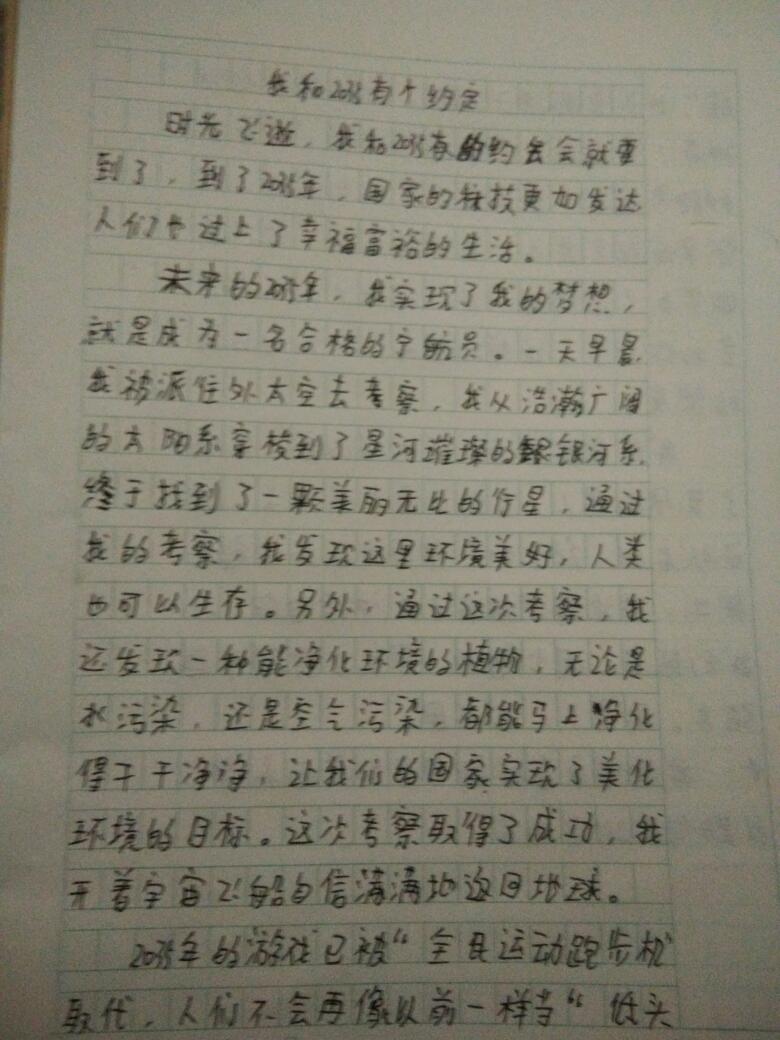 我和2035有个约定
时光飞逝，我和2035有的约会会就要
到了，到了2035年，国家的科技更加发达
人们也过上了幸福富裕的生活。
未来的2035年，我实现了我的梦想，
就是成为一名合格的宇航员。一天早晨，
我被派往外太空去考察，我从浩瀚广阔
的太阳系穿梭到了星河璀璨的银银河系，
终于找到了一颗美丽无比的行星，通过
我的考察，我发现这里环境美好，人类
也可以生存。另外，通过这次考察，我
还发现一种能净化环境的植物，无论是
水污染，还是空气污染，都能马上净化
得干干净净，让我们的国家实现了美化
环境的目标。这次考察取得了成功，我
开着宇宙飞船自信满满地返回地球。
2035年的游戏已被“全民运动跑步机”
取代，人们不会再像以前一样当“低头